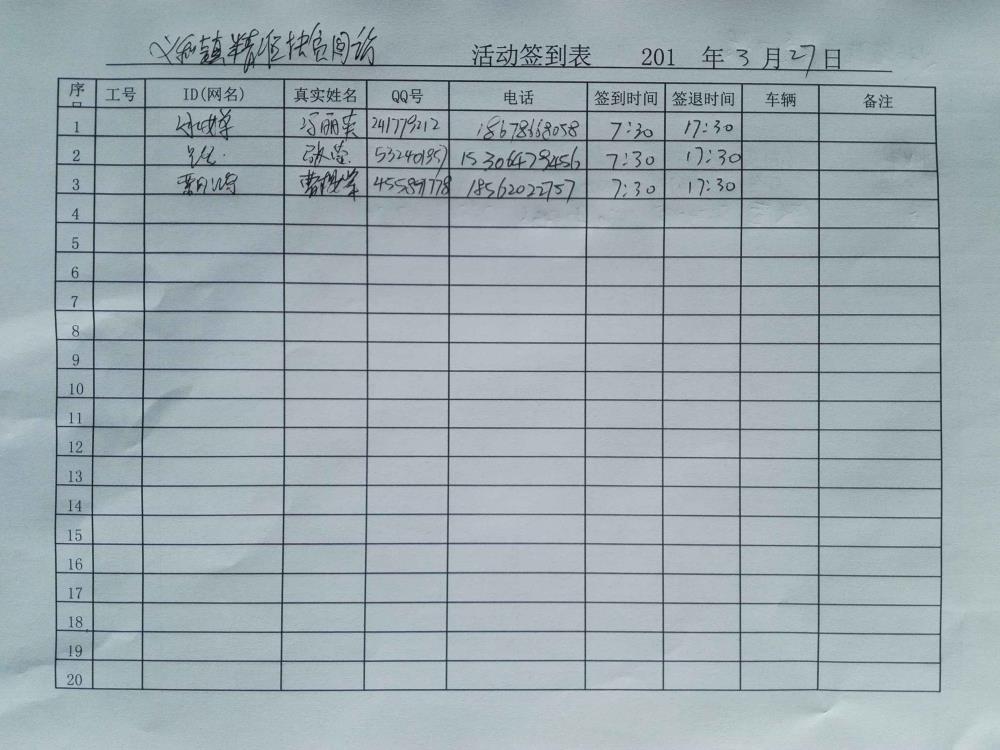 义和镇精准扶贫回访 活动签到表 201 年3月27日
序号 工号 ID(网名) 真实姓名 QQ号 电话 签到时间 签退时间 车辆 备注
1 冯丽英 241779212 18678668058 7:30 17:30
2 张莹 532401357 15306479456 7:30 17:30
3 455897778 18562022757 7:30 17:30
4
5
6
7
8
9
10
11
12
13
14
15
16
17
18
19
20